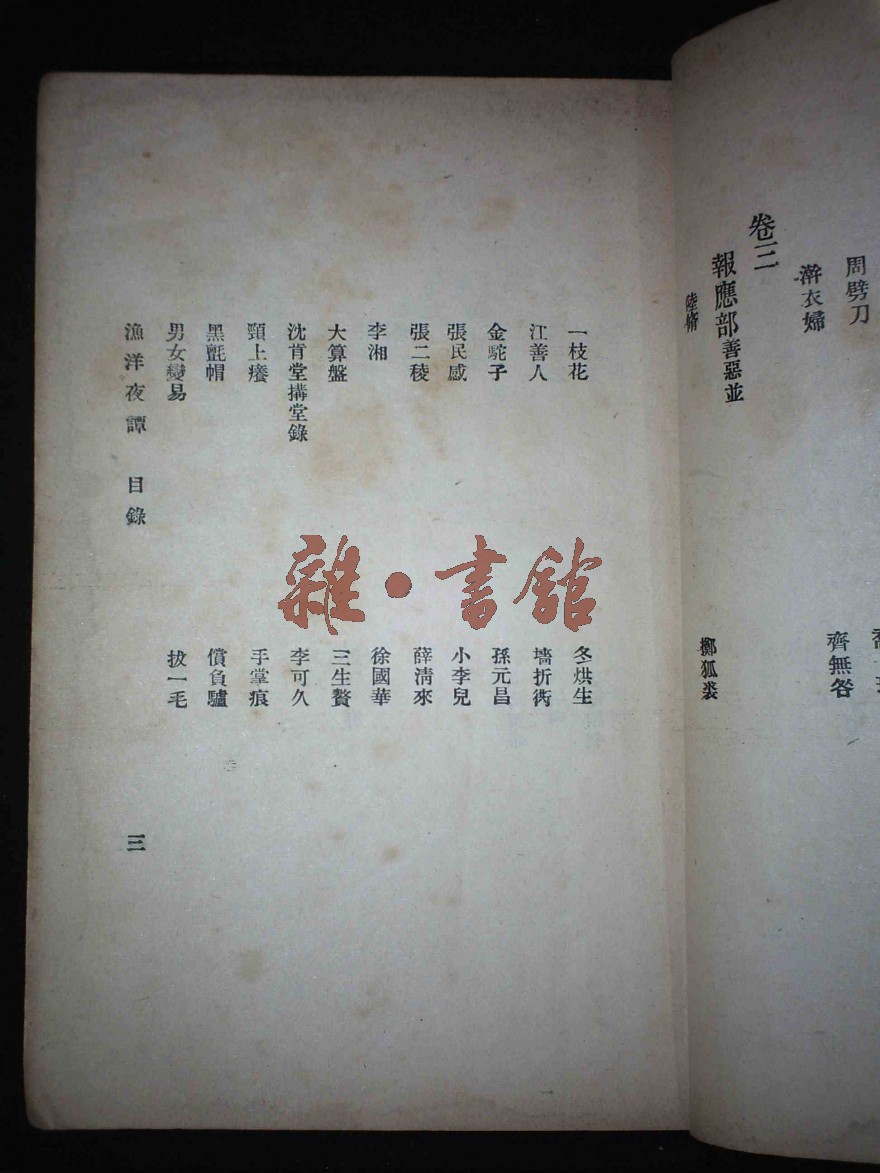 周劈刀
澣衣婦
齊無咎
卷三
報應部善惡並
擲狐裘
一枝花
冬烘生
江善人
墻折衖
金駝子
孫元昌
張民感
小李兒
張二稜
薛清來
李湘
徐國華
大算盤
三生贅
沈肯堂搆堂錄
李可久
頸上癢
手掌痕
黑氈帽
償負驢
男女變易
拔一毛
漁洋夜譚 目錄
三
雜·書館